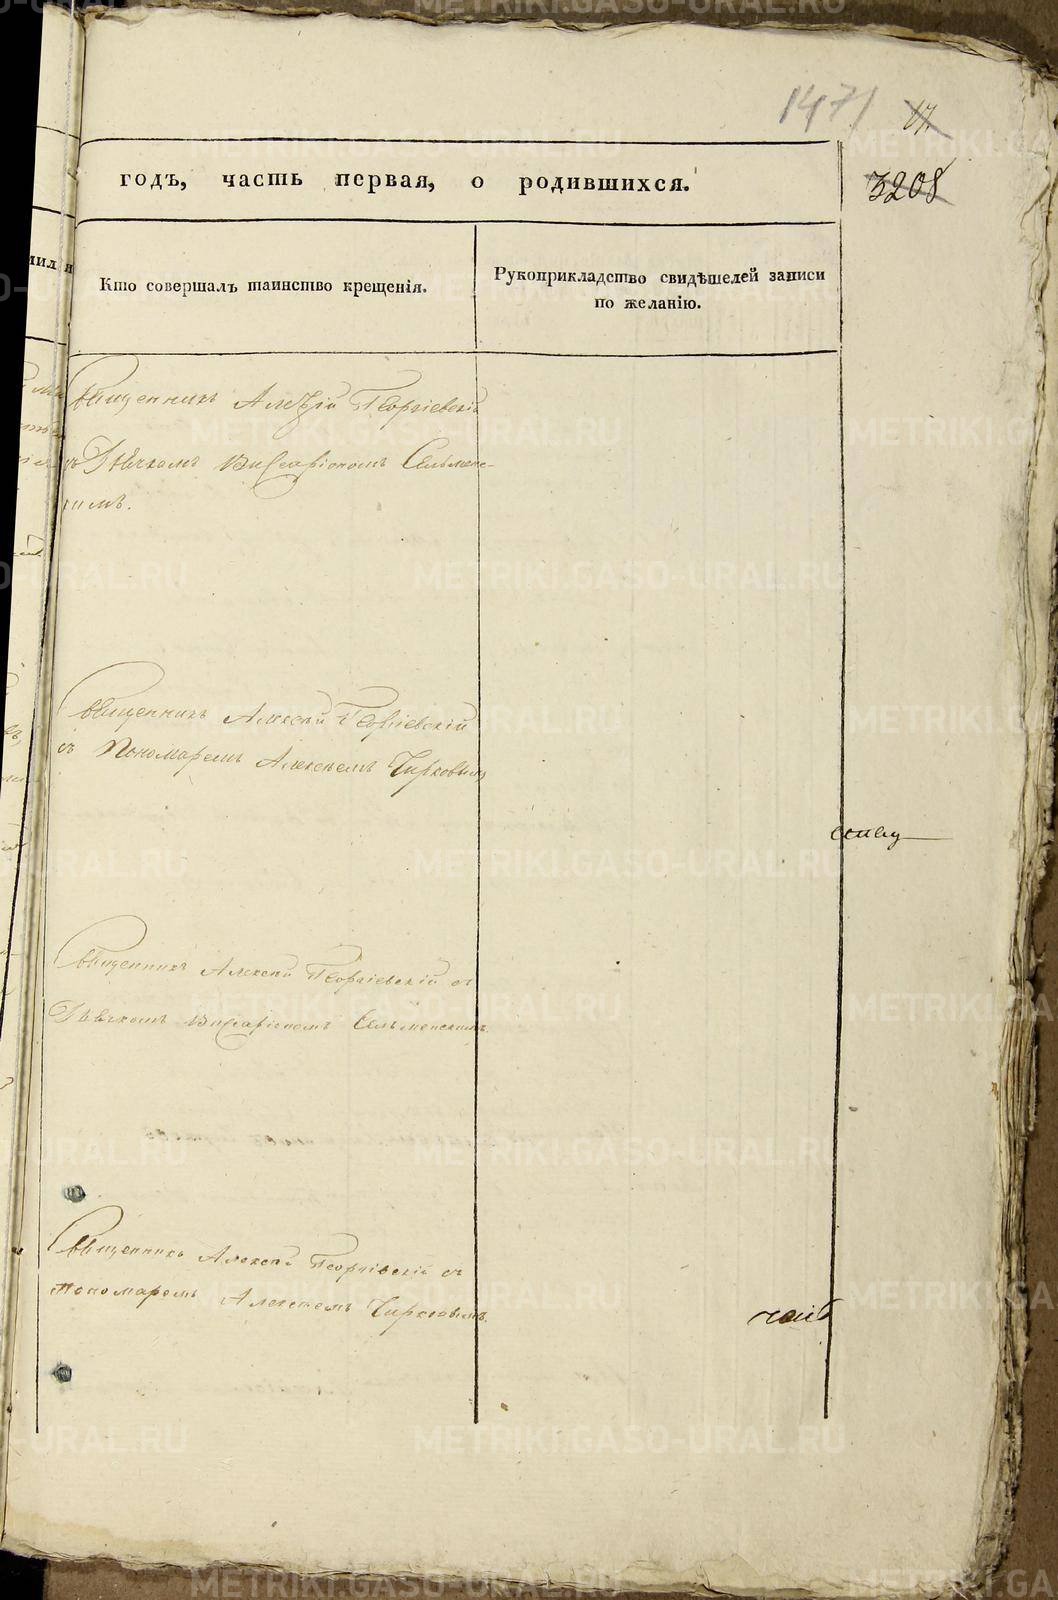 1471
17
3208
годъ, часть первая, о родившихся.
Кто совершалъ таинство крещенія.
Рукоприкладство свидѣтелей записи
по желанію.
Священникъ Алеѯій Георгіевскій
съ Дьячкомъ Висаріономъ Сельменс-
кимъ.
Священникъ Алексій Георгіевскій
съ Пономаремъ Алексѣемъ Чирковымъ
Священникъ Алексій Георгіевскій съ
Дьячкомъ Висаріономъ Сельменскимъ.
Священникъ Алексій Георгіевскій съ
Пономаремъ Алексѣемъ Чирковымъ.
METRIKI.GASO-URAL.RU